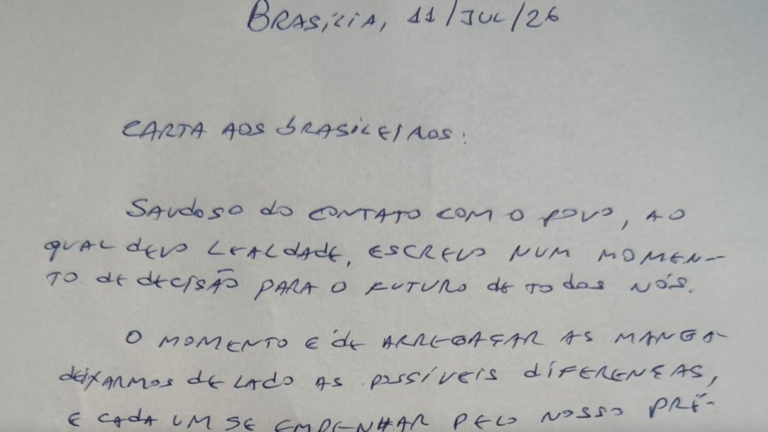 BRASÍLIA, 11/JUL/26
CARTA AOS BRASILEIROS:
SAUDOSO DO CONTATO COM O POVO, AO
QUAL DEVO LEALDADE, ESCREVO NUM MOMEN-
TO DE DECISÃO PARA O FUTURO DE TODOS NÓS.
O MOMENTO É DE ARREGAÇAR AS MANGA
DEIXARMOS DE LADO AS POSSÍVEIS DIFERENÇAS,
E CADA UM SE EMPENHAR PELO NOSSO PRÉ-